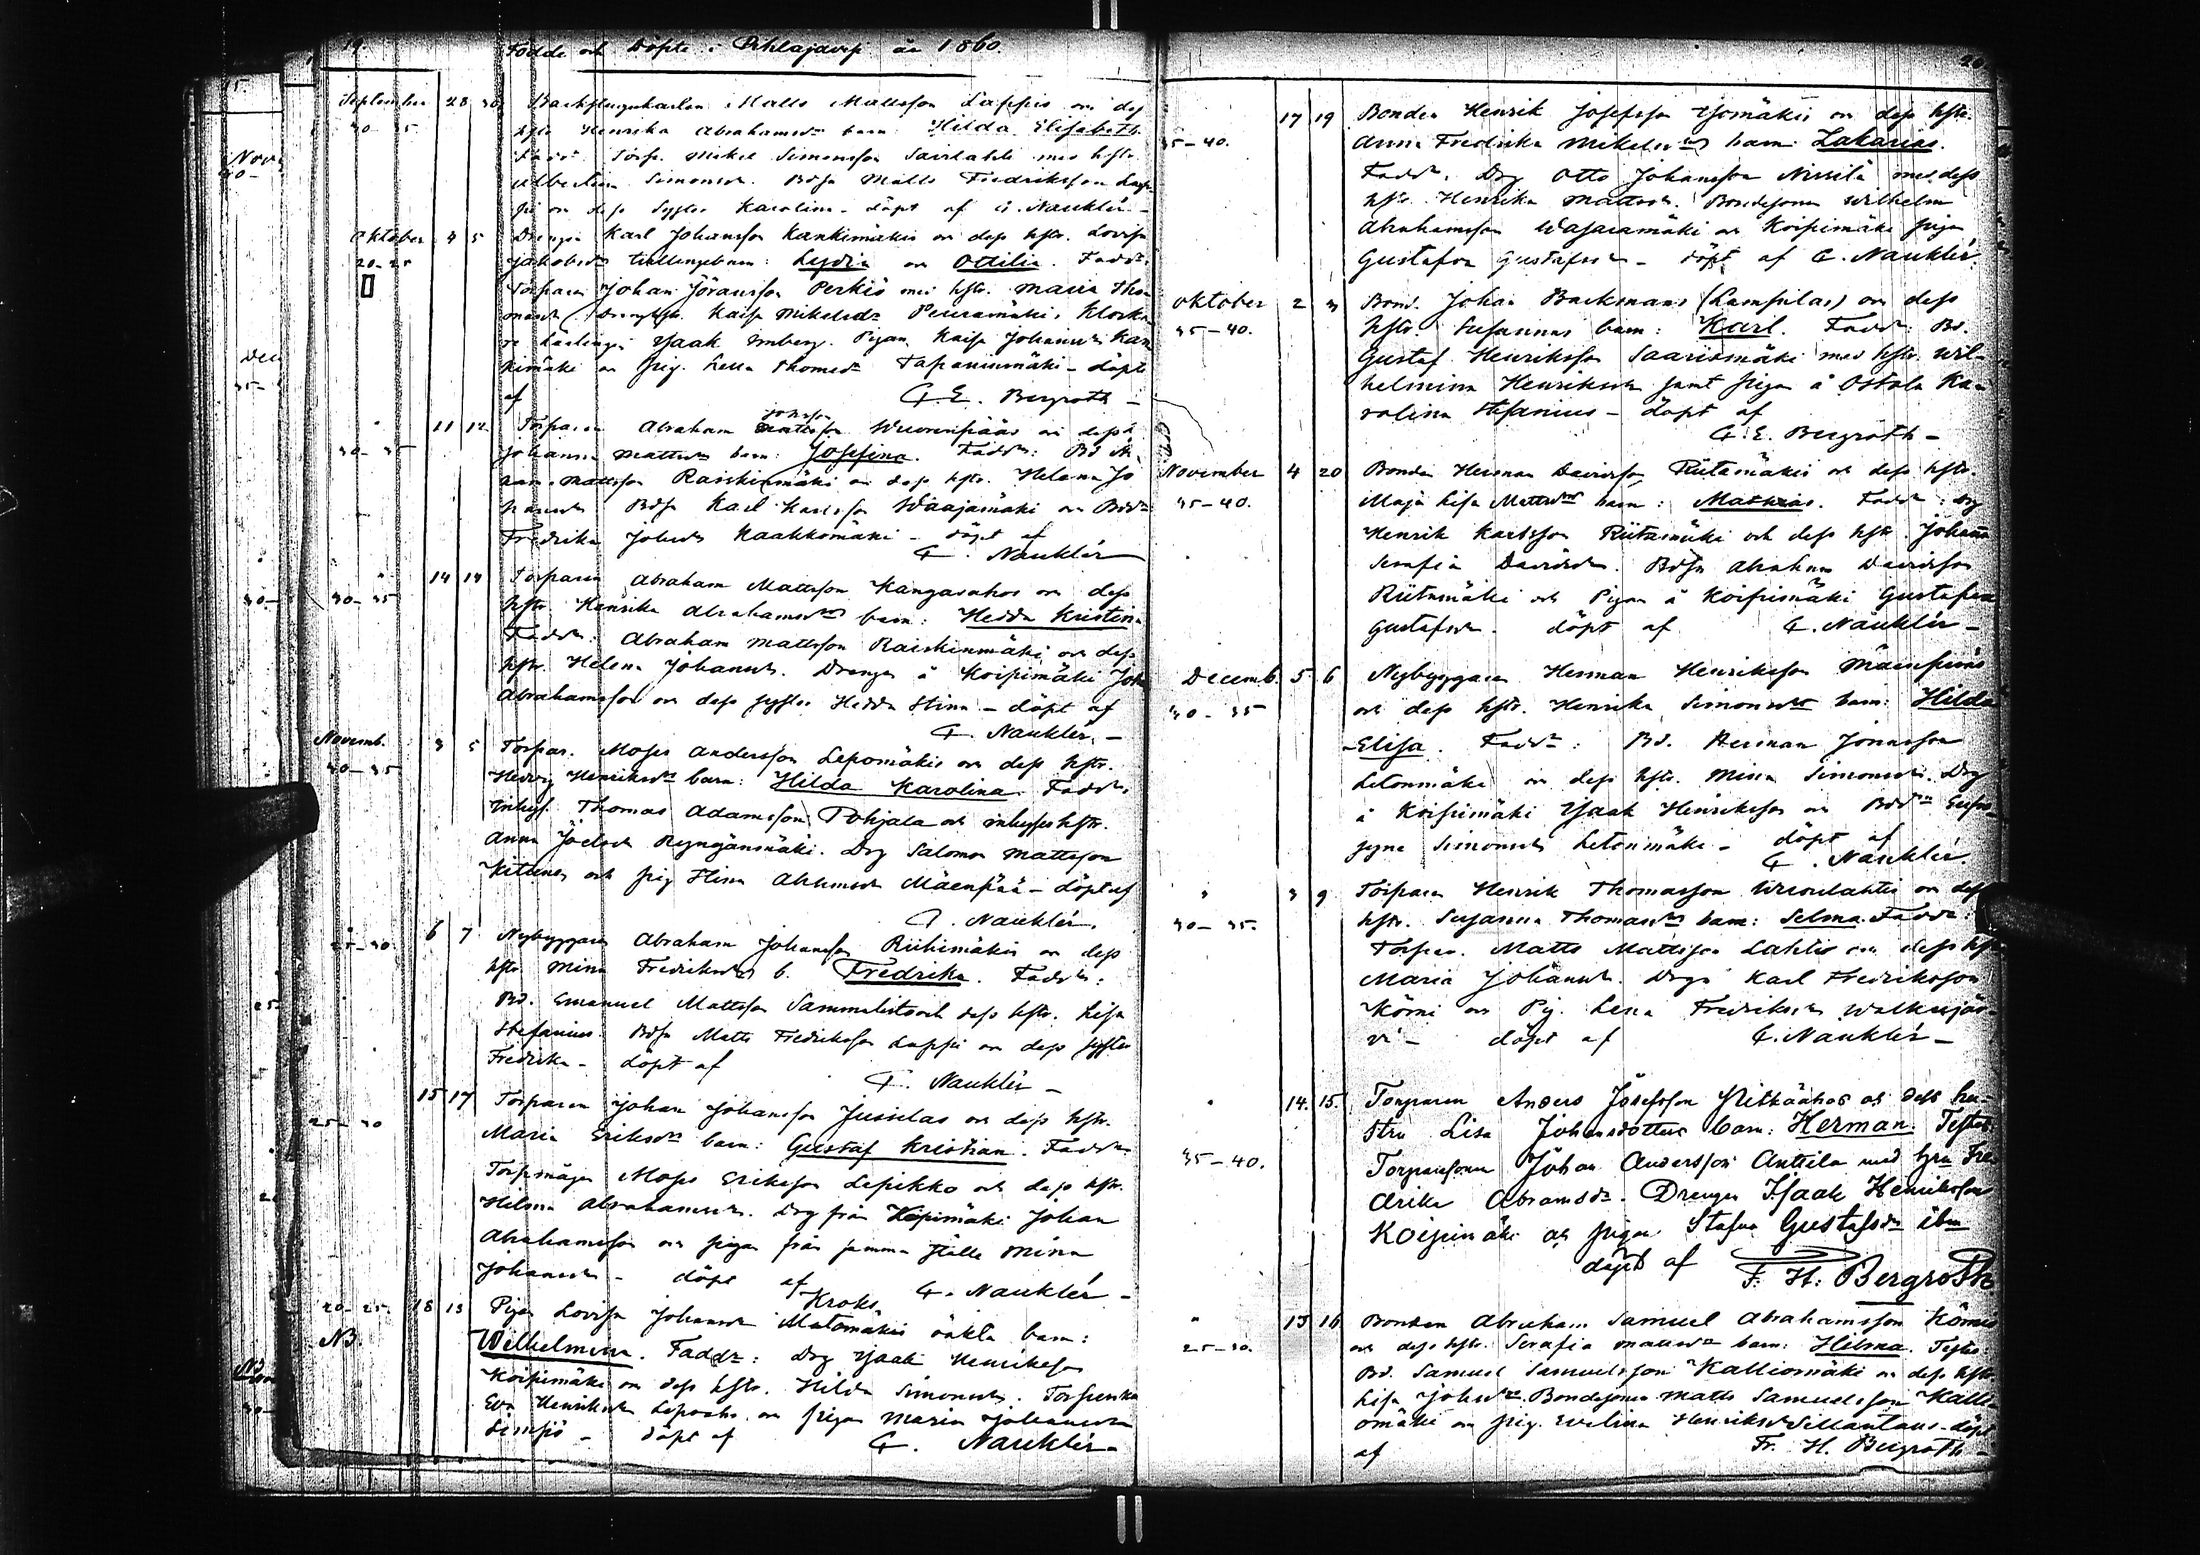 19.
Födde och Döpte i Pihlajavesi år 1860.
September 28 30 Backstugukarlen Matts Mattsson Lappis och dess
30-35 hstr Henrika Abrahamsdr barn: Hilda Elisabeth
Fadd: Torp. Mikel Simonsson Saarlahti med hstr
Albertina Simonsdr. Bdsn Matts Fredriksson
och dess syster Karolina - döpt af G. Nauklér -
Oktober 4 5 Drengen Karl Johansson Kankimäkis och dess hstr. Lovisa
20-25 Jakobsdr tvillingebarn: Lydia och Ottilia. Fadd:
Torparen Johan Göransson Perkiö med hstr. Maria Tho-
masdr Kaisa Mikelsdr Peuramäki, Klocka-
re Isaak Imberg. Pigan Kaisa Johansdr Kan
kimäki och pig. Lena Thomasdr Tapaninmäki - döpt
af G. E. Bergroth -
11 12 Torparen Abraham Johansson Wuorenpääs och dess
30-35 Johanna Mattsdr barn: Josefina. Fadd: Bd
Mattsson Raiskinmäki och dess hstr. Helena Jo
hansdr Bdsn Karl Karlsson Waajamäki och Bdr
Fredrika Johsdr Kaakkomäki - döpt af
G. Nauklér
14 14 Torparen Abraham Mattsson Kangasahos och dess
30-35 hstr. Henrika Abrahamsdr barn: Hedda Kristina
Fadd: Abraham Mattsson Raiskinmäki och dess
hstr. Helena Johansdr. Drengen å Koipimäki Joh
Abrahamsson och dess syster Hedda Stina - döpt af
G. Nauklér. -
Novemb. 3 5 Torpar. Moses Andersson Lepomäkis och dess hstr.
30-35 Hedvig Henriksdr barn: Hilda Karolina. Fadd:
Inhys. Thomas Adamsson Pohjala och inhyseshstr.
Anna Joelsdr Ryngänmäki. Drg Salomon Mattsson
Kitunen och pig Stina Abramsdr Mäenpää - döpt af
G. Nauklér.
25-30. 6 7 Nybyggaren Abraham Johansson Riihimäkis och dess
hstr Mina Fredriksdr b. Fredrika. Fadd:
Bd. Emanuel Mattsson Sammalisto och dess hstr. Lisa
Stefanius. Bdsn Matts Fredriksson Lappi och dess syster
Fredrika - döpt af
G. Nauklér -
15 17 Torparen Johan Johansson Jussilas och dess hstr.
25-30 Maria Eriksdr barn: Gustaf Kristian. Fadd:
Torpmågen Moses Eriksson Lepikko och dess hstr.
Hilma Abrahamsdr. Drg från Koipimäki Johan
Abrahamsson och pigan från samma ställe Mina
Johansdr - döpt af G. Nauklér -
20-25. 18 13 Pigan Lovisa Johansdr Kroks Matomäkis oäkta barn:
NB. Wilhelmina. Fadd: Drg Isaak Henriksson
Koipimäki och dess hstr. Hilda Simonsdr. Torpenka
Eva Henriksdr Lepoaho och pigan Maria Johansdr
Simsiö - döpt af G. Nauklér -
20
17 19 Bonden Henrik Josefsson Isomäkis och dess hstr.
35-40. Anna Fredrika Mikelsdr barn: Zakarias.
Fadd: Drg Otto Johansson Nissilä med dess
hstr. Henrika Mattsdr. Bondesonen Wilhelm
Abrahamsson Wasaramäki och Koipimäki pigan
Gustafva Gustafsdr - döpt af G. Nauklér.
Oktober 2 3 Bond. Johan Backmans (Lampilas) och dess
35-40. hstr. Susannas barn: Karl. Fadd: Bd.
Gustaf Henriksson Saarismäki med hstr. Wil-
helmina Henriksdr samt pigan å Ostola Ka-
rolina Stefanius - döpt af
G. E. Bergroth -
November 4 20 Bonden Herman Davidsson Riitamäkis och dess hstr.
35-40. Maja Lisa Mattsdr barn: Mathias. Fadd: Drg
Henrik Karlsson Riitamäki och dess hstr. Johanna
Serafia Davidsdr. Bdsn Abraham Davidsson
Riitamäki och Pigan å Koipimäki Gustafva
Gustafsdr. döpt af G. Nauklér -
Decemb. 5 6 Nybyggaren Herman Henriksson Mäenpääs
30-35 och dess hstr. Henrika Simonsdr barn: Hilda
Elisa. Fadd: Bd. Herman Jonasson
Letonmäki och dess hstr. Mina Simonsdr. Drg
å Koipimäki Isaak Henriksson och Bddr Eufro-
syne Simonsdr Letonmäki - döpt af
G. Nauklér.
" 3 9 Torparen Henrik Thomasson Wuorilahtis och dess
30-35. hstr. Susanna Thomasdr barn: Selma. Fadd:
Torpar. Matts Mattsson Lahtis och dess hstr
Maria Johansdr. Drg Karl Fredriksson
Körni och Pig. Lena Fredriksdr Walkeajär-
vi - döpt af G. Nauklér -
" 14. 15. Torparen Anders Josefsson Pitkäahos och dess hu-
stru Lisa Johansdotters barn: Herman. Test:
35-40. Torparesonen Johan Andersson Anttila med hru Fre
drika Abramsdr. Drengen Isaak Henriksson
Koipimäki och pigan Stafva Gustafsdr ibm
döpt af F. H. Bergroth
" 15 16 Bonden Abraham Samuel Abrahamsson Körnis
25-30. och dess hstr. Serafia Mattsdr barn: Hilma. Test:
Bd. Samuel Samuelsson Kalliomäki och dess hstr
Lisa Johsdr. Bondesonen Matts Samuelsson Kalli-
omäki och pig. Evelina Henriksdr Sillantaus - döpt
af Fr. H. Bergroth -